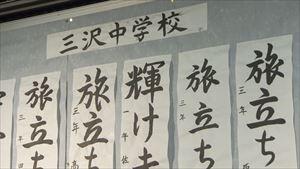 三沢中学校
旅立ち
三年
旅立ち
三年
輝け
一年 佐
旅立ち
三年 高
旅立ち
三年